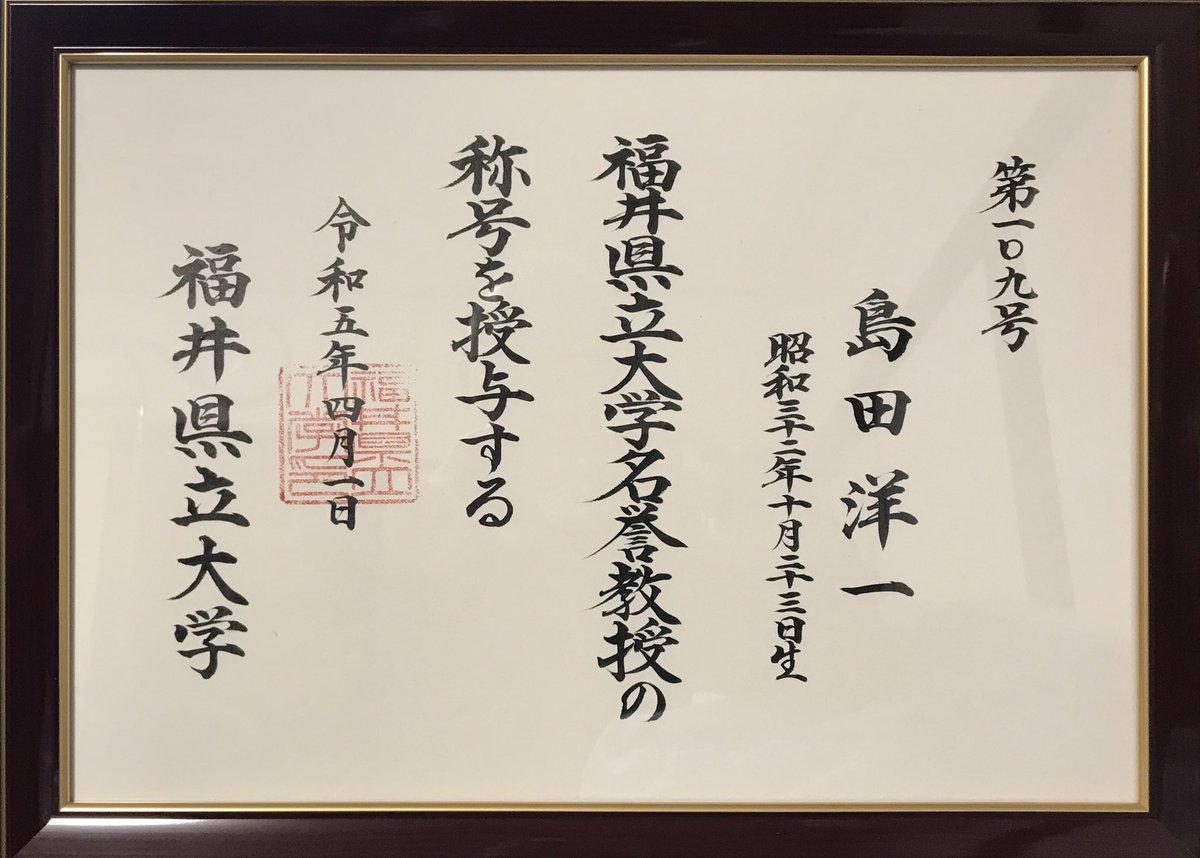 第一〇九号
島田洋一
昭和三十二年十月二十三日生
福井県立大学名誉教授の
称号を授与する
令和五年四月一日
福井県立大学